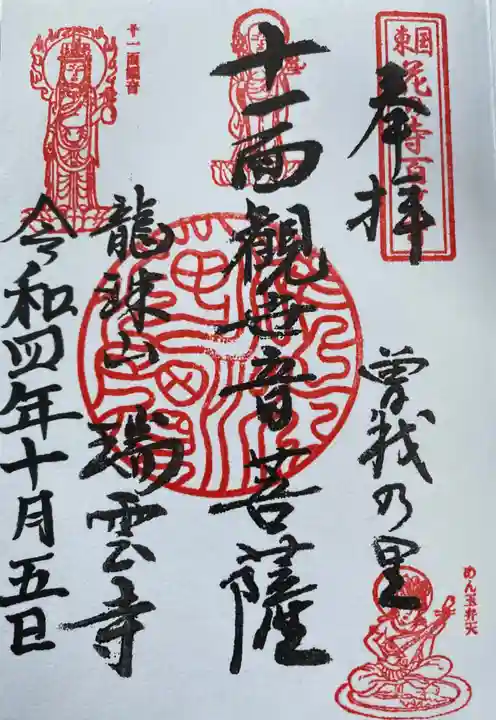 東国花の寺百
奉拝
曽我の里
めん玉弁天
十一面觀世音菩薩
龍珠山 瑞雲寺
十一面観音
令和四年十月五日